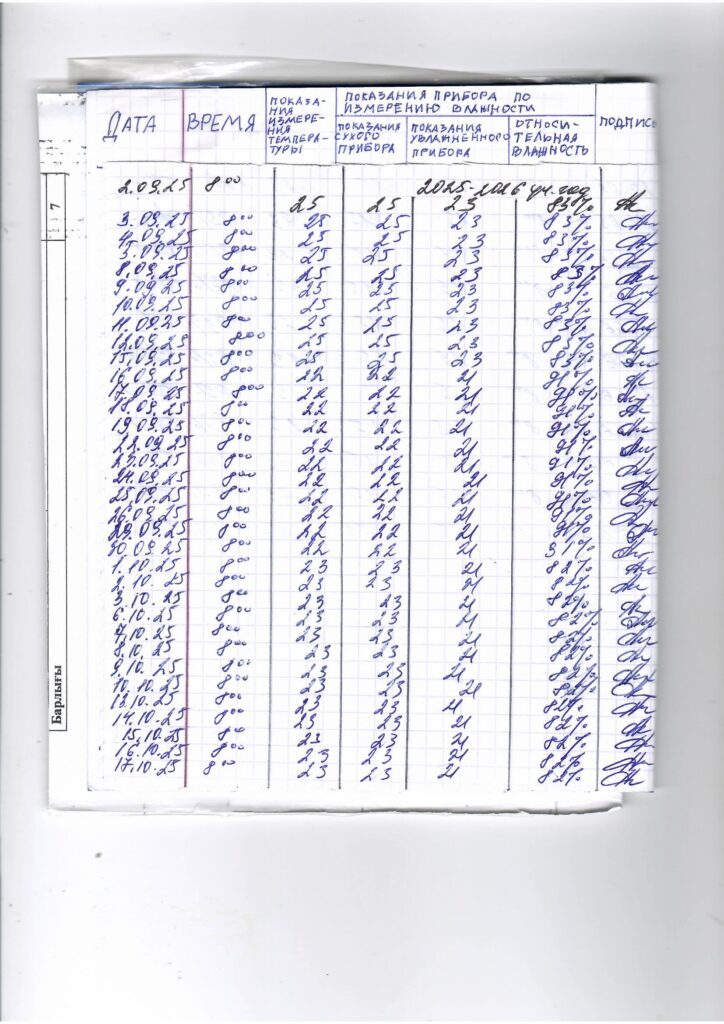 ДАТА ВРЕМЯ ПОКАЗА-
НИЯ
ИЗМЕРЕ-
НИЯ
ТЕМПЕРА-
ТУРЫ
ПОКАЗАНИЯ ПРИБОРА ПО
ИЗМЕРЕНИЮ ВЛАЖНОСТИ
ПОКАЗАНИЯ
СУХОГО
ПРИБОРА
ПОКАЗАНИЯ
УВЛАЖНЕННОГО
ПРИБОРА
ОТНОСИ-
ТЕЛЬНАЯ
ВЛАЖНОСТЬ
ПОДПИСЬ
2025-2026 уч. год
2.09.25 8⁰⁰ 25 25 23 83%
3.09.25 8⁰⁰ 25 25 23 83%
4.09.25 8⁰⁰ 25 25 23 83%
5.09.25 8⁰⁰ 25 25 23 83%
8.09.25 8⁰⁰ 25 25 23 83%
9.09.25 8⁰⁰ 25 25 23 83%
10.09.25 8⁰⁰ 25 25 23 83%
11.09.25 8⁰⁰ 25 25 23 83%
12.09.25 8⁰⁰ 25 25 23 83%
15.09.25 8⁰⁰ 25 25 23 83%
16.09.25 8⁰⁰ 22 22 21 91%
17.09.25 8⁰⁰ 22 22 21 91%
18.09.25 8⁰⁰ 22 22 21 91%
19.09.25 8⁰⁰ 22 22 21 91%
22.09.25 8⁰⁰ 22 22 21 91%
23.09.25 8⁰⁰ 22 22 21 91%
24.09.25 8⁰⁰ 22 22 21 91%
25.09.25 8⁰⁰ 22 22 21 91%
26.09.25 8⁰⁰ 22 22 21 91%
29.09.25 8⁰⁰ 22 22 21 91%
30.09.25 8⁰⁰ 22 22 21 91%
1.10.25 8⁰⁰ 23 23 21 82%
2.10.25 8⁰⁰ 23 23 21 82%
3.10.25 8⁰⁰ 23 23 21 82%
6.10.25 8⁰⁰ 23 23 21 82%
7.10.25 8⁰⁰ 23 23 21 82%
8.10.25 8⁰⁰ 23 23 21 82%
9.10.25 8⁰⁰ 23 23 21 82%
10.10.25 8⁰⁰ 23 23 21 82%
13.10.25 8⁰⁰ 23 23 21 82%
14.10.25 8⁰⁰ 23 23 21 82%
15.10.25 8⁰⁰ 23 23 21 82%
16.10.25 8⁰⁰ 23 23 21 82%
17.10.25 8⁰⁰ 23 23 21 82%
7
Барлығы